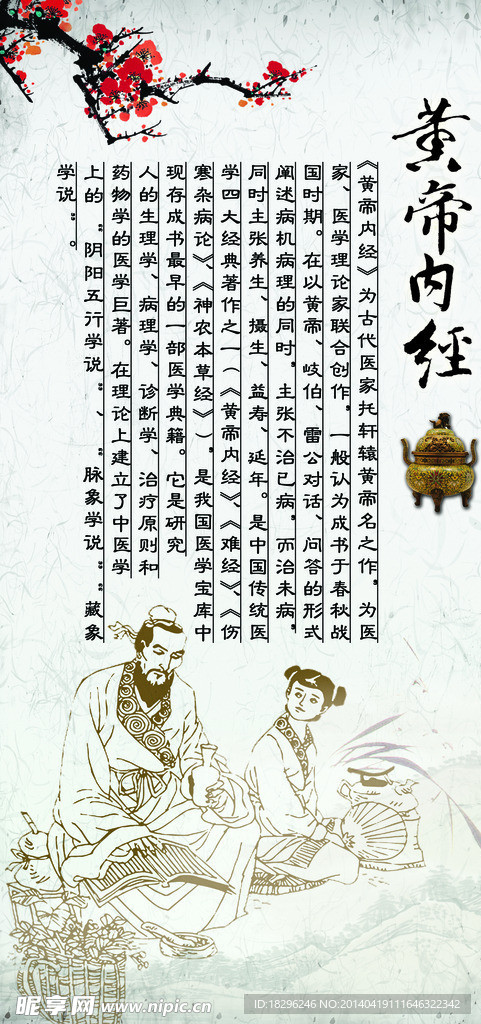 黄帝内經
《黄帝内经》为古代医家托轩辕黄帝名之作，为医
家、医学理论家联合创作，一般认为成书于春秋战
国时期。在以黄帝、岐伯、雷公对话、问答的形式
阐述病机病理的同时，主张不治已病，而治未病，
同时主张养生、摄生、益寿、延年。是中国传统医
学四大经典著作之一（《黄帝内经》、《难经》、《伤
寒杂病论》、《神农本草经》），是我国医学宝库中
现存成书最早的一部医学典籍。它是研究
人的生理学、病理学、诊断学、治疗原则和
药物学的医学巨著。在理论上建立了中医学
上的“阴阳五行学说”、“脉象学说”“藏象
学说”。
昵享网 www.nipic.cn
ID:18296246 NO:20140419111646322342